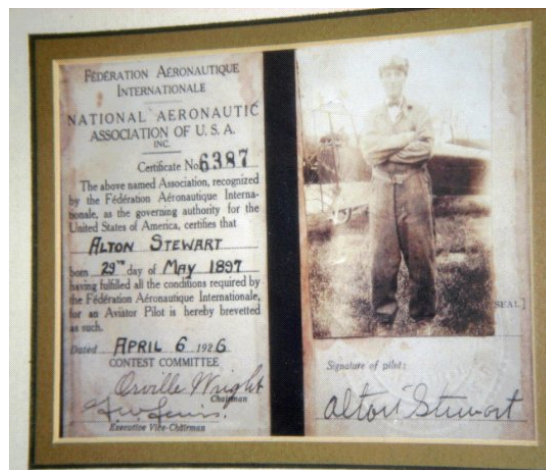 FÉDÉRATION AÉRONAUTIQUE
INTERNATIONALE
NATIONAL AERONAUTIC
ASSOCIATION OF U. S. A.
INC.
Certificate No. 6387
The above named Association, recognized
by the Fédération Aéronautique Interna-
tionale, as the governing authority for the
United States of America, certifies that
ALTON STEWART
born 29TH day of MAY 1897
having fulfilled all the conditions required by
the Fédération Aéronautique Internationale,
for an Aviator Pilot is hereby brevetted
as such.
Dated APRIL 6 1926
CONTEST COMMITTEE
Orville Wright
Chairman
Executive Vice-Chairman
SEAL]
Signature of pilot:
Alton Stewart